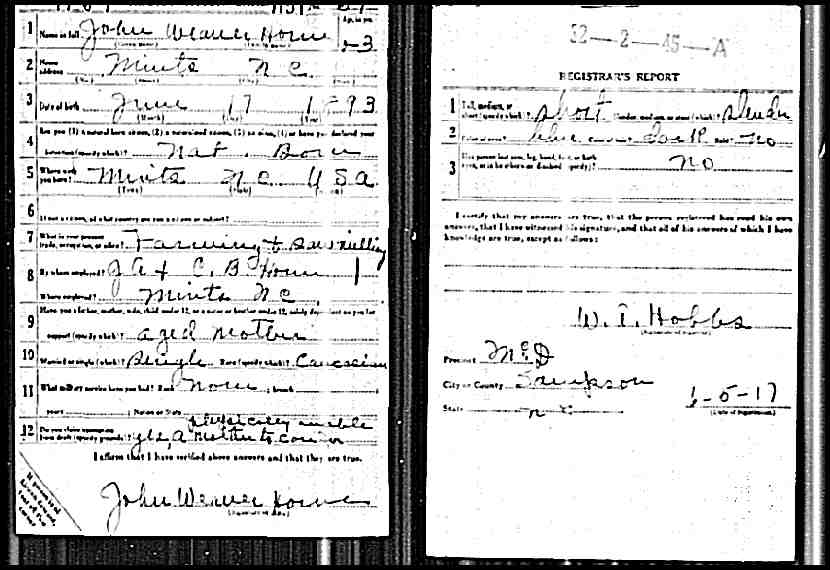 1 Name in full John Weaver Horne Age, in yrs. 23
(Given name) (Family name)
2 Home address Mints N C.
(No.) (Street) (City) (State)
3 Date of birth June 17 1893
(Month) (Day) (Year)
4 Are you (1) a natural born citizen, (2) a naturalized citizen, (3) an alien, (4) or have you declared your
intention (specify which)? Nat. Born
5 Where were you born? Mints N C U S A
(Town) (State) (Nation)
6 If not a citizen, of what country are you a citizen or subject?
7 What is your present trade, occupation, or office? Farming & Sawmilling
8 By whom employed? J A & C. B Horne
Where employed? Mints N C
9 Have you a father, mother, wife, child under 12, or a sister or brother under 12, solely dependent on you for
support (specify which)? aged mother
10 Married or single (which)? Single Race (specify which)? Caucasian
11 What military service have you had? Rank None ; branch
years ; Nation or State
12 Do you claim exemption from draft (specify grounds)? yes, A mother to
physically unable
I affirm that I have verified above answers and that they are true.
John Weaver Horne
(Signature or mark)
If person is of African descent, tear off this corner
32—2—45—A
REGISTRAR'S REPORT
1 Tall, medium, or short (specify which)? Short Slender, medium, or stout (which)? Slender
2 Color of eyes? blue Color of hair? dark Bald? No
3 Has person lost arm, leg, hand, foot, or both eyes, or is he otherwise disabled (specify)? no
I certify that my answers are true, that the person registered has read his own
answers, that I have witnessed his signature, and that all of his answers of which I have
knowledge are true, except as follows:
W. T. Hobbs
(Signature of registrar)
Precinct McD
City or County Sampson
State N C
6-5-17
(Date of registration)